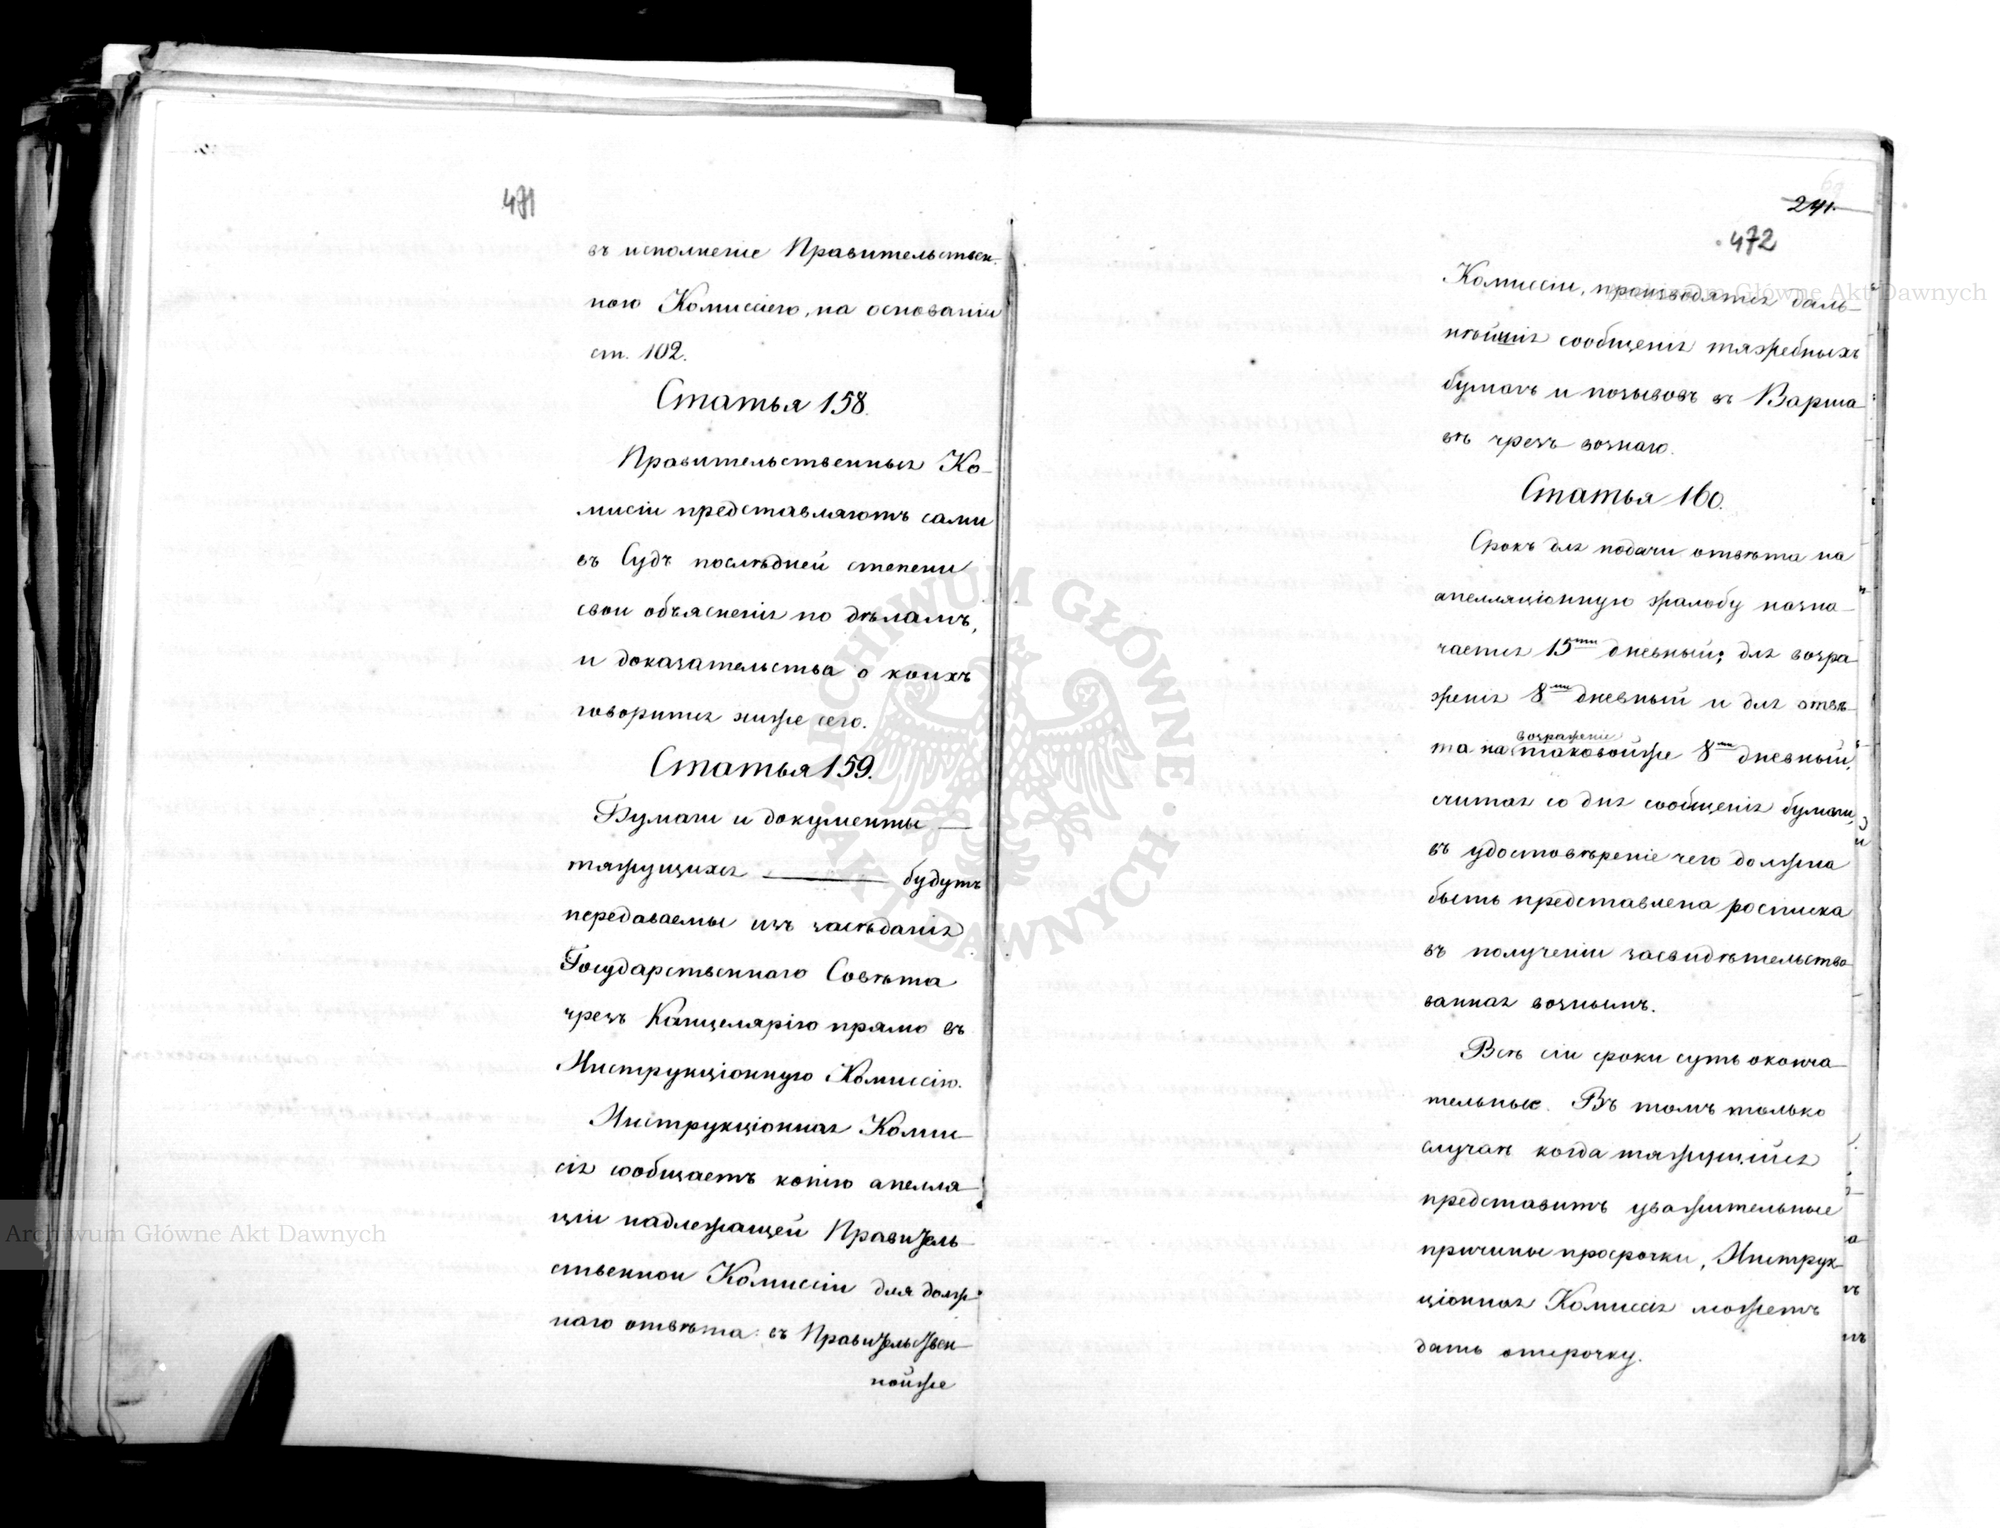 471
въ исполненіе Правительствен-
ною Комиссіею, на основаніи
ст. 102.
Статья 158.
Правительственныя Ко-
мисіи представляютъ сами
въ Судъ послѣдней степени
свои объясненія по дѣламъ,
и доказательства о коихъ
говорится ниже сего.
Статья 159.
Бумаги и документы —
тяжущихся — будутъ
передаваемы изъ засѣданія
Государственнаго Совѣта
чрезъ Канцелярію прямо въ
Инструкціонную Комиссію.
Инструкціонная Комми-
сія сообщаетъ копію апелля-
ціи надлежащей Правитель-
ственной Комиссіи для долж-
наго отвѣта: въ Правительствен-
нойже
241.
472
Комиссіи, производятся даль-
нѣйшія сообщенія тяжебныхъ
бумагъ и позывовъ въ Варша-
вѣ чрезъ вознаго.
Статья 160.
Срокъ для подачи отвѣта на
апелляціонную жалобу назна-
чается 15ти дневный; для возра-
женія 8ми дневный и для отвѣ-
возраженіе
та на таковойже 8ми дневный,
считая со дня сообщенія бумаги,
въ удостовѣреніе чего должна
быть представлена росписка
въ полученіи засвидѣтельство-
ванная вознымъ.
Всѣ сіи сроки суть оконча-
тельные. Въ томъ только
случаѣ когда тяжущійся
представитъ уважительные
причины просрочки, Инструк-
ціонная Комиссія можетъ
дать отсрочку.
Archiwum Główne Akt Dawnych
Archiwum Główne Akt Dawnych
ARCHIWUM GŁÓWNE · AKT DAWNYCH ·